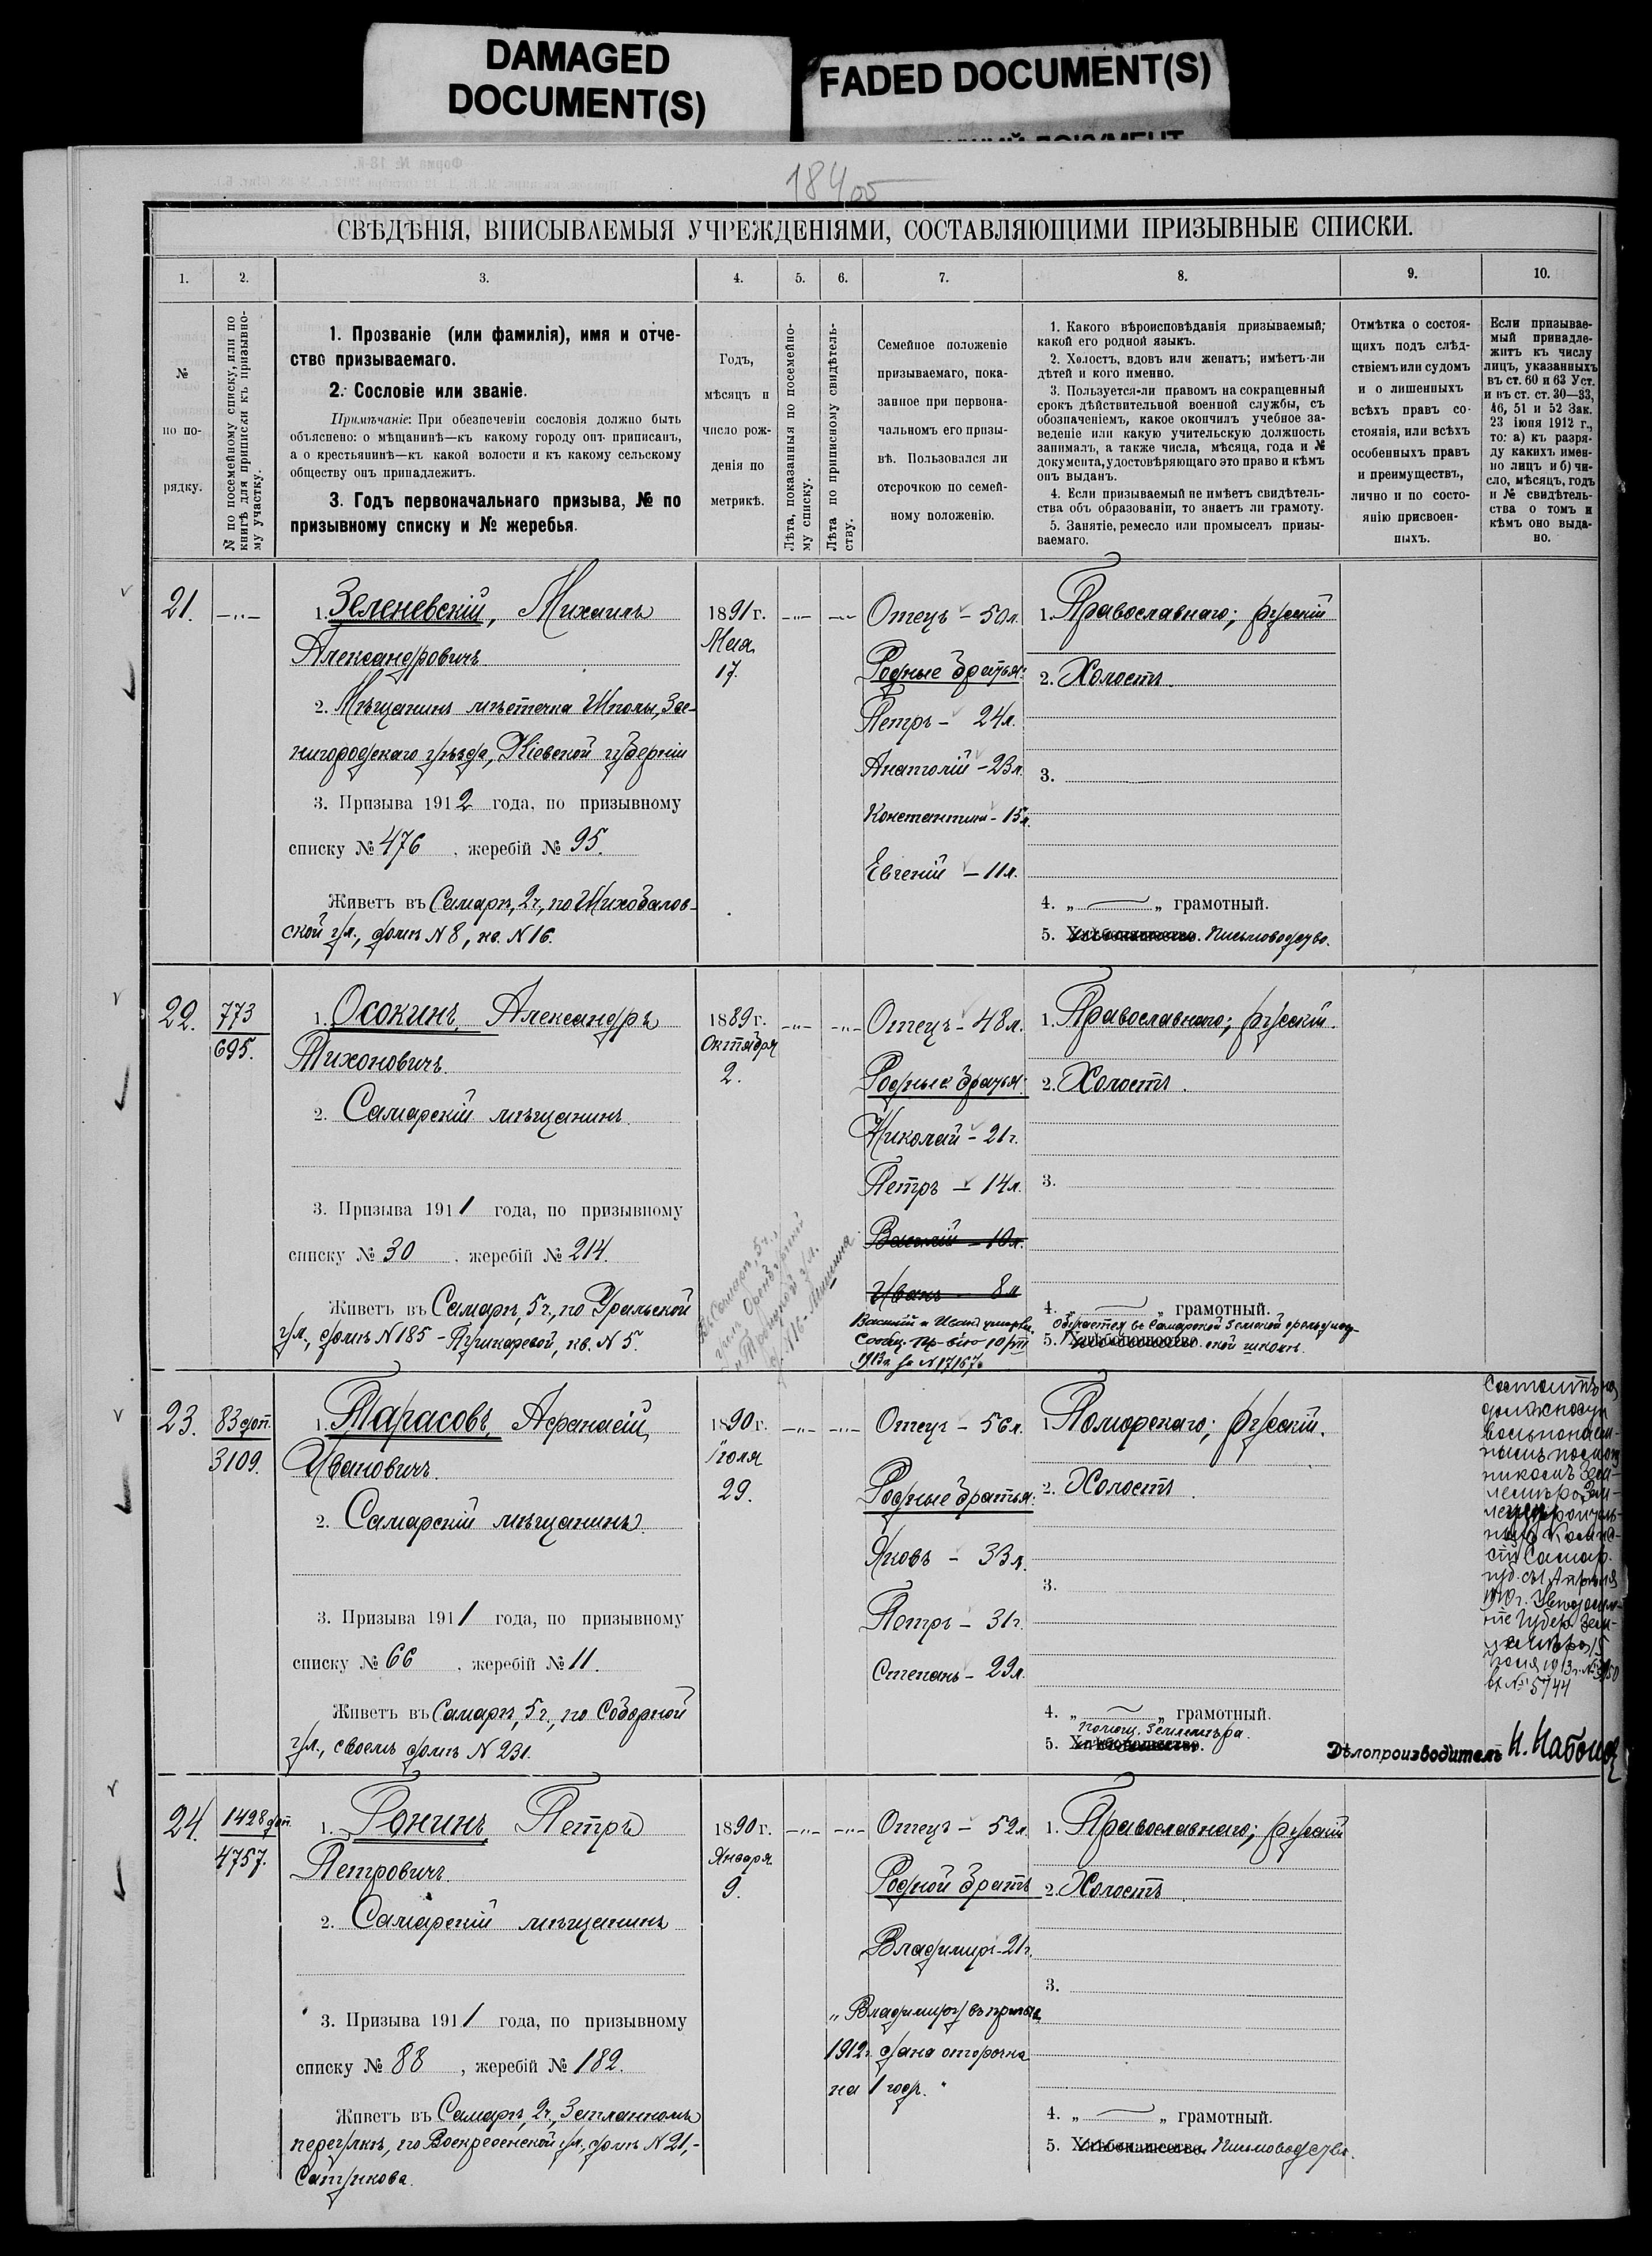 DAMAGED
DOCUMENT(S)
FADED DOCUMENT(S)
184 об
СВѢДѢНІЯ, ВПИСЫВАЕМЫЯ УЧРЕЖДЕНІЯМИ, СОСТАВЛЯЮЩИМИ ПРИЗЫВНЫЕ СПИСКИ.
1. 2. 3. 4. 5. 6. 7. 8. 9. 10.
№
по по-
рядку.
№ по посемейному списку, или по
книгѣ для приписки къ призывно-
му участку.
1. Прозваніе (или фамилія), имя и отче-
ство призываемаго.
2. Сословіе или званіе.
Примѣчаніе: При обезпеченіи сословія должно быть
объяснено: о мѣщанинѣ—къ какому городу онъ приписанъ,
а о крестьянинѣ—къ какой волости и къ какому сельскому
обществу онъ принадлежитъ.
3. Годъ первоначальнаго призыва, № по
призывному списку и № жеребья.
Годъ,
мѣсяцъ и
число рож-
денія по
метрикѣ.
Лѣта, показанныя по посемейно-
му списку.
Лѣта по приписному свидѣтель-
ству.
Семейное положеніе
призываемаго, пока-
занное при первона-
чальномъ его призы-
вѣ. Пользовался ли
отсрочкою по семей-
ному положенію.
1. Какого вѣроисповѣданія призываемый;
какой его родной языкъ.
2. Холостъ, вдовъ или женатъ; имѣетъ-ли
дѣтей и кого именно.
3. Пользуется-ли правомъ на сокращенный
срокъ дѣйствительной военной службы, съ
обозначеніемъ, какое окончилъ учебное за-
веденіе или какую учительскую должность
занималъ, а также числа, мѣсяца, года и №
документа, удостовѣряющаго это право и кѣмъ
онъ выданъ.
4. Если призываемый не имѣетъ свидѣтель-
ства объ образованіи, то знаетъ ли грамоту.
5. Занятіе, ремесло или промыселъ призы-
ваемаго.
Отмѣтка о состоя-
щихъ подъ слѣд-
ствіемъ или судомъ
и о лишенныхъ
всѣхъ правъ со-
стоянія, или всѣхъ
особенныхъ правъ
и преимуществъ,
лично и по состо-
янію присвоен-
ныхъ.
Если призывае-
мый принадле-
житъ къ числу
лицъ, указанныхъ
въ ст. 60 и 63 Уст.
и въ ст. ст. 30—33,
46, 51 и 52 Зак.
23 іюня 1912 г.,
то: а) къ разря-
ду какихъ имен-
но лицъ и б) чи-
сло, мѣсяцъ, годъ
и № свидѣтель-
ства о томъ и
кѣмъ оно выда-
но.
21. —"—
1. Зеленевскій, Михаилъ
Александровичъ
2. Мѣщанинъ мѣстечка Шполы, Зве-
нигородскаго уѣзда, Кіевской губерніи
3. Призыва 1912 года, по призывному
списку № 476, жеребій № 95.
Живетъ въ Самарѣ, 2ч., по Шихобалов-
ской ул., домъ N 8, кв. N 16.
1891 г.
Мая
17.
—"— —"—
Отецъ - 50л.
Родные братья:
Петръ - 24л.
Анатолій - 23л.
Константинъ - 15л.
Евгеній - 11л.
1. Православнаго; русскій
2. Холостъ.
3.
4. „ — „ грамотный.
5. Хлѣбопашество. Письмоводство.
22. 773
695.
1. Осокинъ, Александръ
Тихоновичъ.
2. Самарскій мѣщанинъ.
3. Призыва 1911 года, по призывному
списку № 30, жеребій № 214.
Живетъ въ Самарѣ, 5ч., по Уральской
ул., домъ N 185 - Пушкаревой, кв. N 5.
1889 г.
Октября
2.
—"— —"—
Отецъ - 48л.
Родные братья:
Николай - 21г.
Петръ - 14л.
Василій - 10л.
Иванъ - 8л
Василій и Иванъ умерли.
1. Православнаго; русскій.
2. Холостъ.
3.
4. „ — „ грамотный.
5. Хлѣбопашество. ской школѣ.
23. 83 доп.
3109.
1. Тарасовъ, Афанасій
Ивановичъ.
2. Самарскій мѣщанинъ.
3. Призыва 1911 года, по призывному
списку № 66, жеребій № 11.
Живетъ въ Самарѣ, 5ч., по Соборной
ул., своемъ домѣ N 231.
1890 г.
Іюля
29.
—"— —"—
Отецъ - 56л.
Родные братья:
Яковъ - 33л.
Петръ - 31г.
Степанъ - 29л.
1. Поморскаго; русскій.
2. Холостъ.
3.
4. „ — „ грамотный.
помощ. землемѣра.
5. Хлѣбопашество.
Состоитъ на
должности
Дѣлопроизводитель
24. 1428 доп.
4757.
1. Ронинъ, Петръ
Петровичъ.
2. Самарскій мѣщанинъ
3. Призыва 1911 года, по призывному
списку № 88, жеребій № 182.
Живетъ въ Самарѣ, 2ч., Запланномъ
переулкѣ, по Воскресенской ул., домъ N 21,-
1890 г.
Января
9.
—"— —"—
Отецъ - 52л
Родной братъ
Владимиръ - 21г.
„Владимиру въ призывъ
1912г. дана отсрочка
на 1 годъ."
1. Православнаго; русскій
2. Холостъ
3.
4. „ — „ грамотный.
5. Хлѣбопашество. Письмоводство.